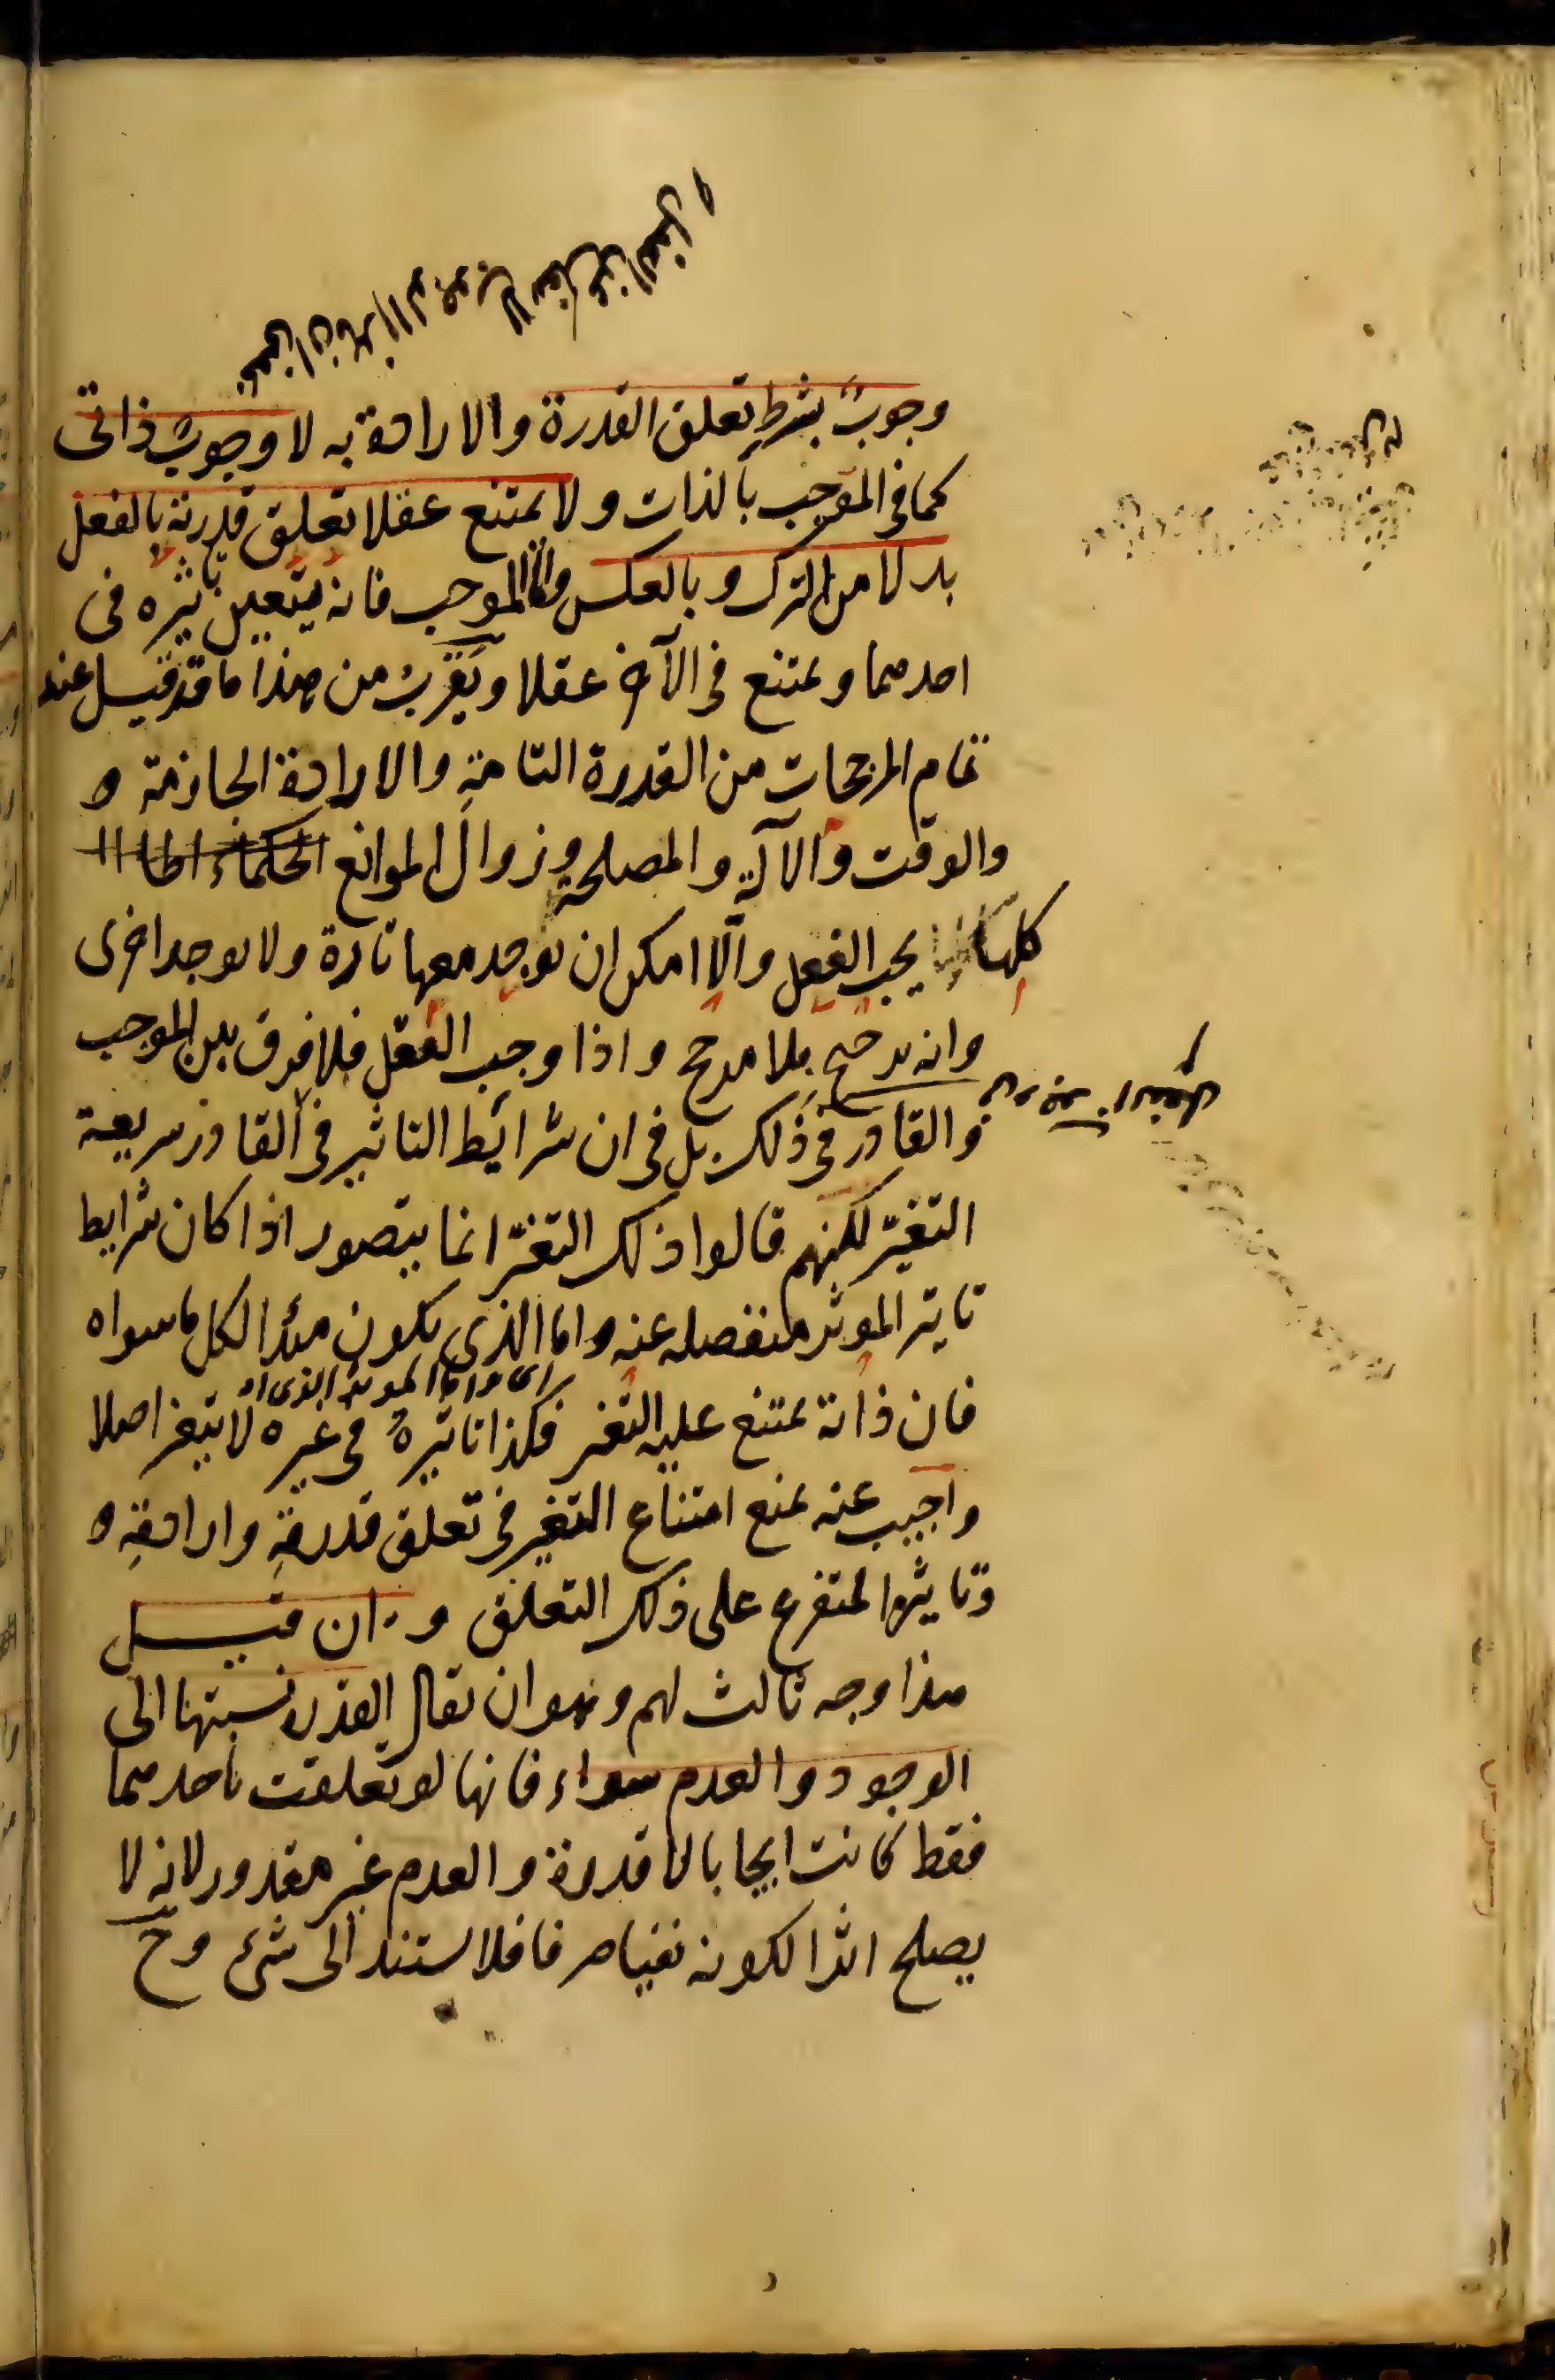 وجوبٌ بشرطِ تعلق القدرة والارادة به لا وجوبٌ ذاتى
كما فى الموجب بالذات ولا يمتنع عقلا تعلق قدرته بالفعل
بدلا من الترك وبالعكس واما الموجب فانه يتعين تاثيره فى
احدهما ويمتنع فى الآخر عقلا ويقربُ من هذا ما قد قيل عند
تمام المرجحات من القدرة التامةِ والارادة الجازمة و
والوقت والآلةِ والمصلحةِ وزوال الموانع الحكماء
كلها يجب الفعل والّا امكن ان يوجد معها تارة ولا يوجد اخرى
وانه ترجيح بلا مرجح واذا وجب الفعل فلا فرق بين الموجب
والقادر فى ذلك بل فى ان شرائط التاثير فى القادر سريعة
التغيّر لكنهم قالوا ذلك التغيّر انما يتصور اذا كان شرايط
تاثير الموثر منفصله عنه واما الذى يكون مبدا لكل ما سواه
اى واما الموثر الذى
فان ذاته يمتنع عليه التغير فكذا تاثيرهُ فى غيره لا يتغير اصلا
واجيب عنه بمنع امتناع التغير فى تعلق قدرتهِ وارادتهِ و
وتاثيرها المتفرع على ذلك التعلق و ان قيل
هذا وجه ثالث لهم وهو ان يقال القدرة نسبتها الى
الوجود والعدم سواء فانها لو تعلقت باحدهما
فقط كانت ايجابا لا قدرة والعدم غير مقدور لانه لا
يصلح اثرا لكونه نفيا صرفا فلا يستند الى شىء وح